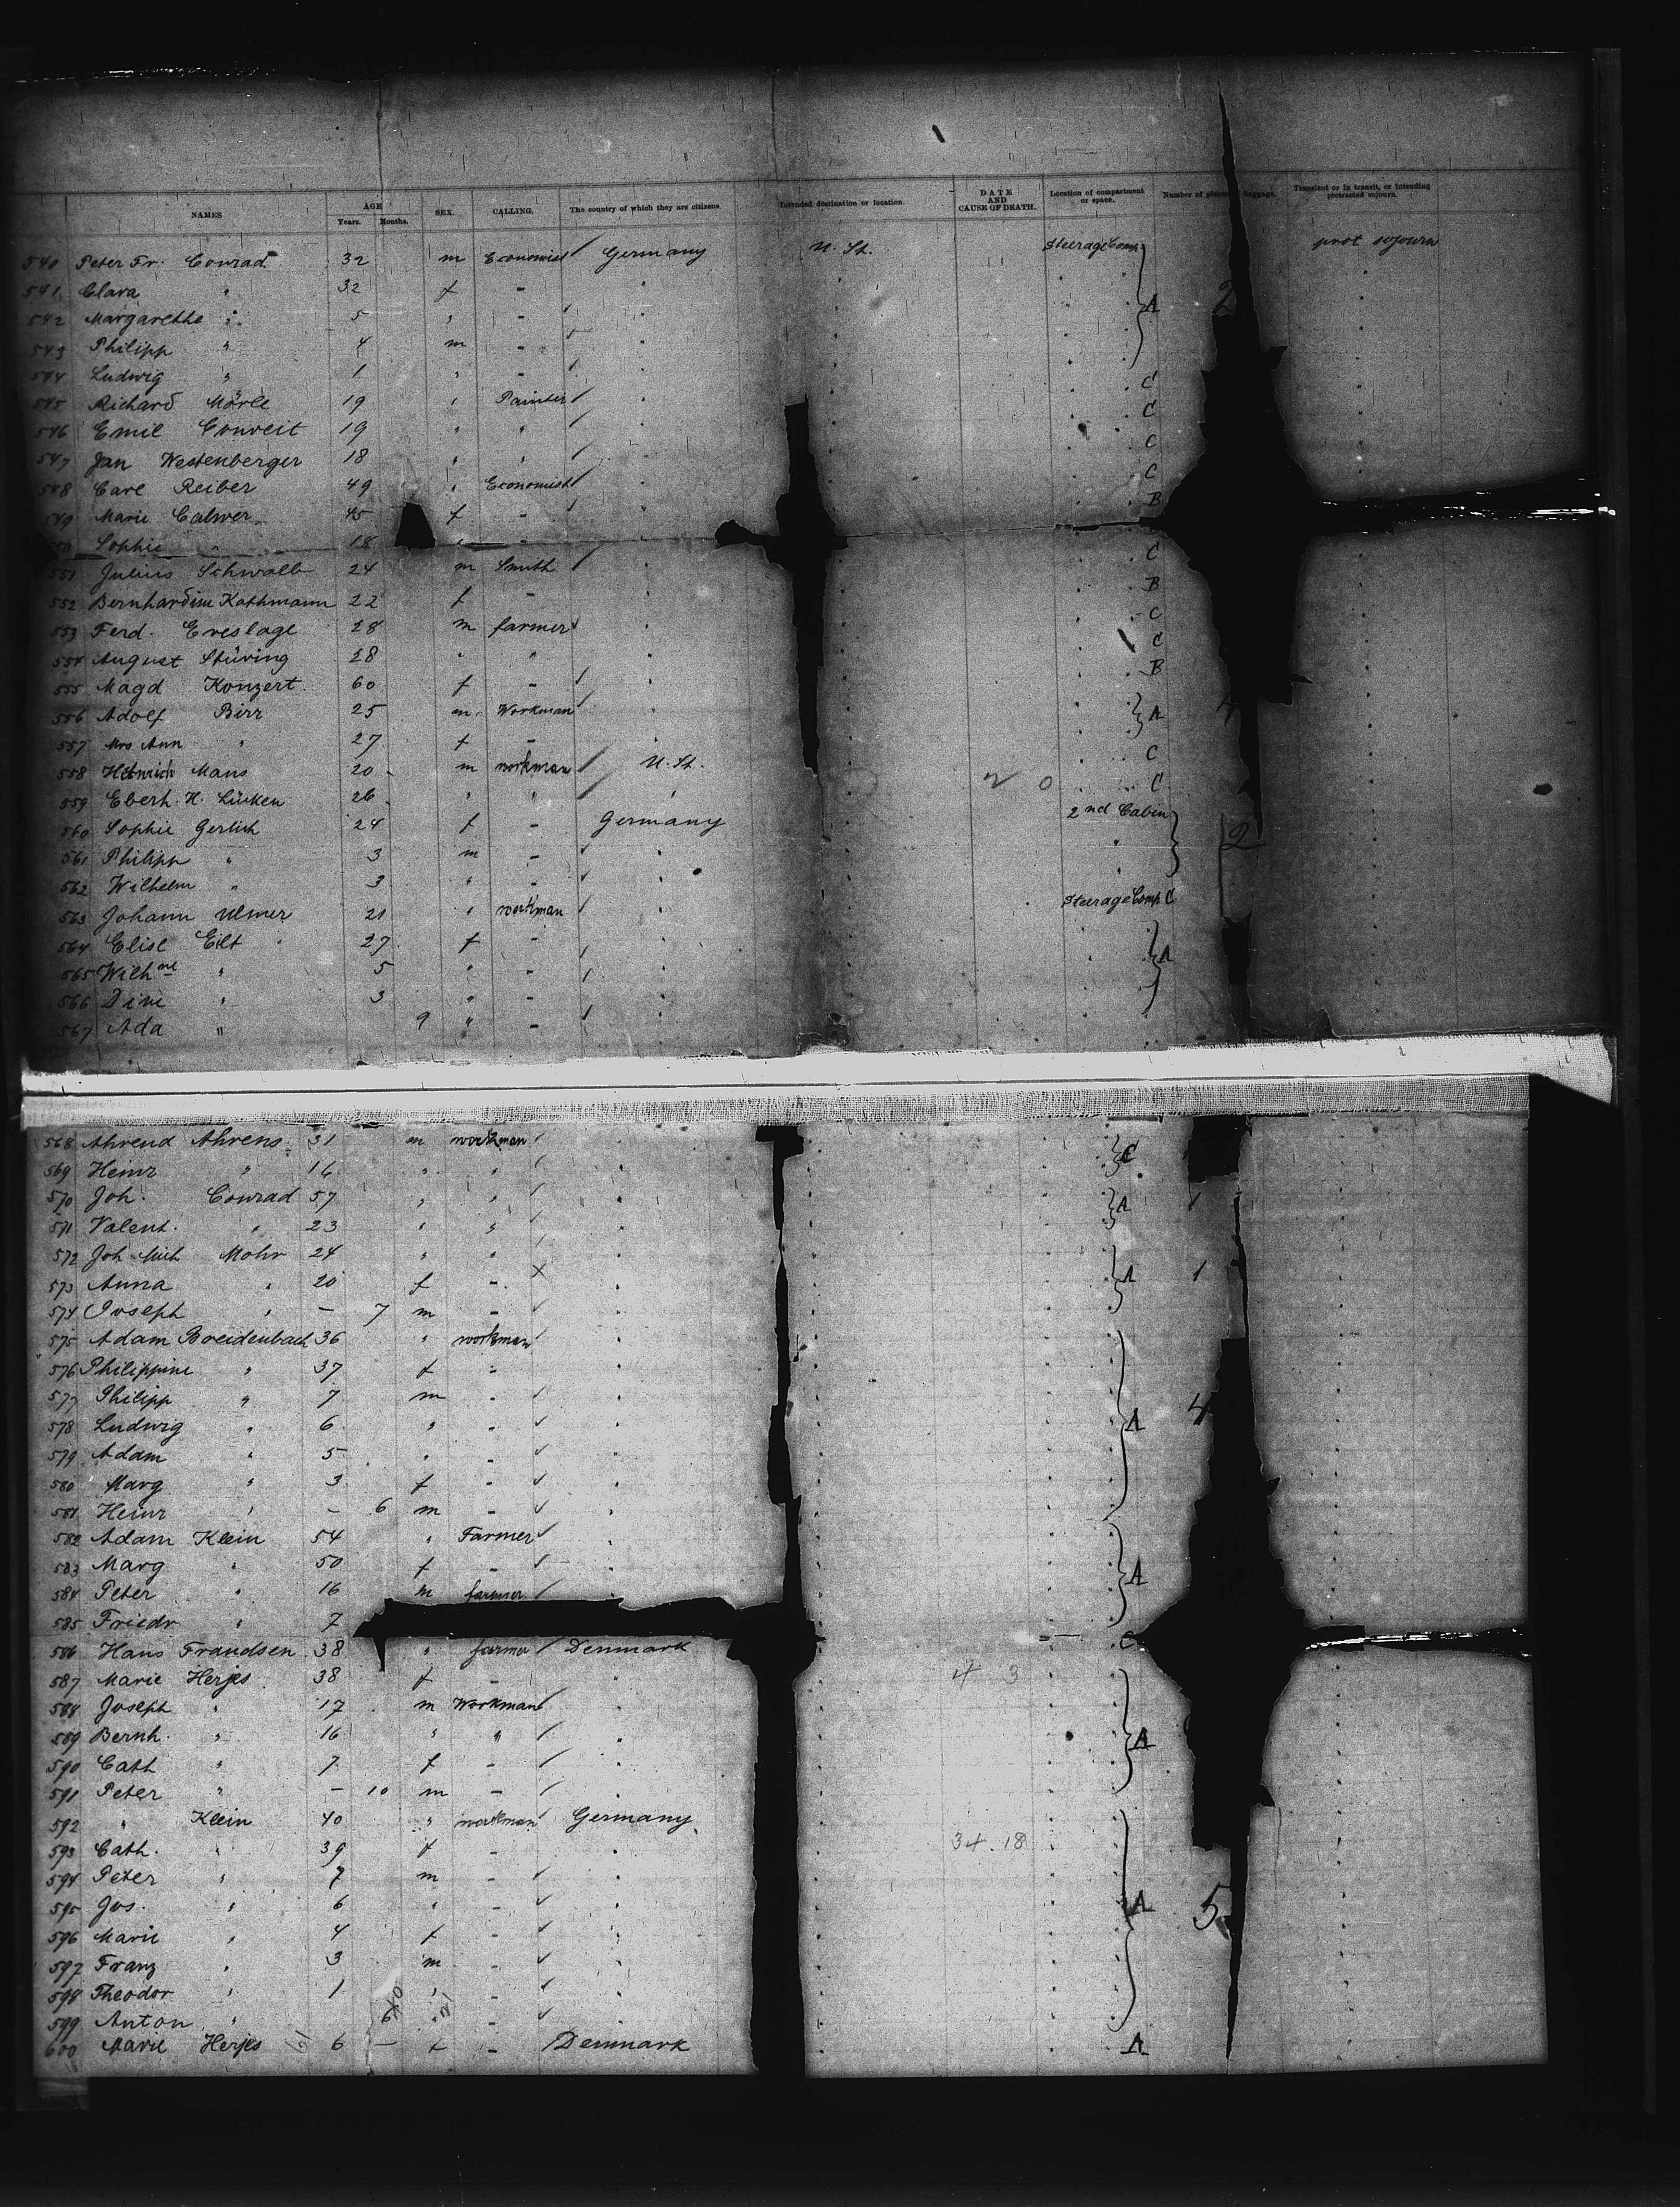 NAMES AGE Years. Months. SEX. CALLING. The country of which they are citizens. Intended destination or location. DATE AND CAUSE OF DEATH. Location of compartment or space. Number of pieces baggage. Transient or in transit, or intending protracted sojourn.
540 Peter Fr. Conrad 32 m Economist Germany U. St. Steerage Comp. prot sojourn
541 Clara " 32 f -
542 Margarethe " 5 " - A 2
543 Philipp " 4 m -
544 Ludwig " 1 " -
545 Richard Mörle 19 " Painter C
546 Emil Conveit 19 " " C
547 Jan Westenberger 18 " " C
548 Carl Reiber 49 " Economist C
549 Marie Calwer 45 f - B
50 Sophie " 18 " -
551 Julius Schwalb 24 m Smith C
552 Bernhardine Kathmann 22 f - B
553 Ferd. Ereslage 28 m farmer C
554 August Stüring 28 " " C
555 Magd Konzert 60 f - B
556 Adolf Birr 25 m Workman A
557 Mrs Ann " 27 f -
558 Heinrich Mans 20 m workman U. St. C
559 Eberh. H. Lücken 26 " " " 2 0 C
560 Sophie Gerlich 24 f - Germany 2nd Cabin
561 Philipp " 3 m - " 2
562 Wilhelm " 3 " -
563 Johann Ulmer 21 " workman Steerage Comp. C
564 Elise Eilt 27 f -
565 Wilhme " 5 " - A
566 Dine " 3 " -
567 Ada " 9 " -
568 Ahrend Ahrens 31 m workman C
569 Heinr " 16 " "
570 Joh. Conrad 57 " " A 1
571 Valent. " 23 " "
572 Joh Mich Mohr 24 " "
573 Anna " 20 f - X A 1
574 Joseph " - 7 m -
575 Adam Breidenbach 36 " workman
576 Philippine " 37 f -
577 Philipp " 7 m - 4
578 Ludwig " 6 " - A
579 Adam " 5 " -
580 Marg " 3 f -
581 Heinr " - 6 m -
582 Adam Klein 54 " Farmer
583 Marg " 50 f - A
584 Peter " 16 m farmer
585 Friedr " 7
586 Hans Frandsen 38 " farmer Denmark C
587 Marie Herjes 38 f - 4 3
588 Joseph " 17 m Workman
589 Bernh. " 16 " " A
590 Cath " 7 f -
591 Peter " - 10 m -
592 " Klein 40 " workman Germany
593 Cath. " 39 f - 34.18
594 Peter " 7 m -
595 Jos. " 6 " - A 5
596 Marie " 4 f -
597 Franz " 3 m -
598 Theodor " 1 " -
599 Anton " " -
600 Marie Herjes 6 - f - Denmark A